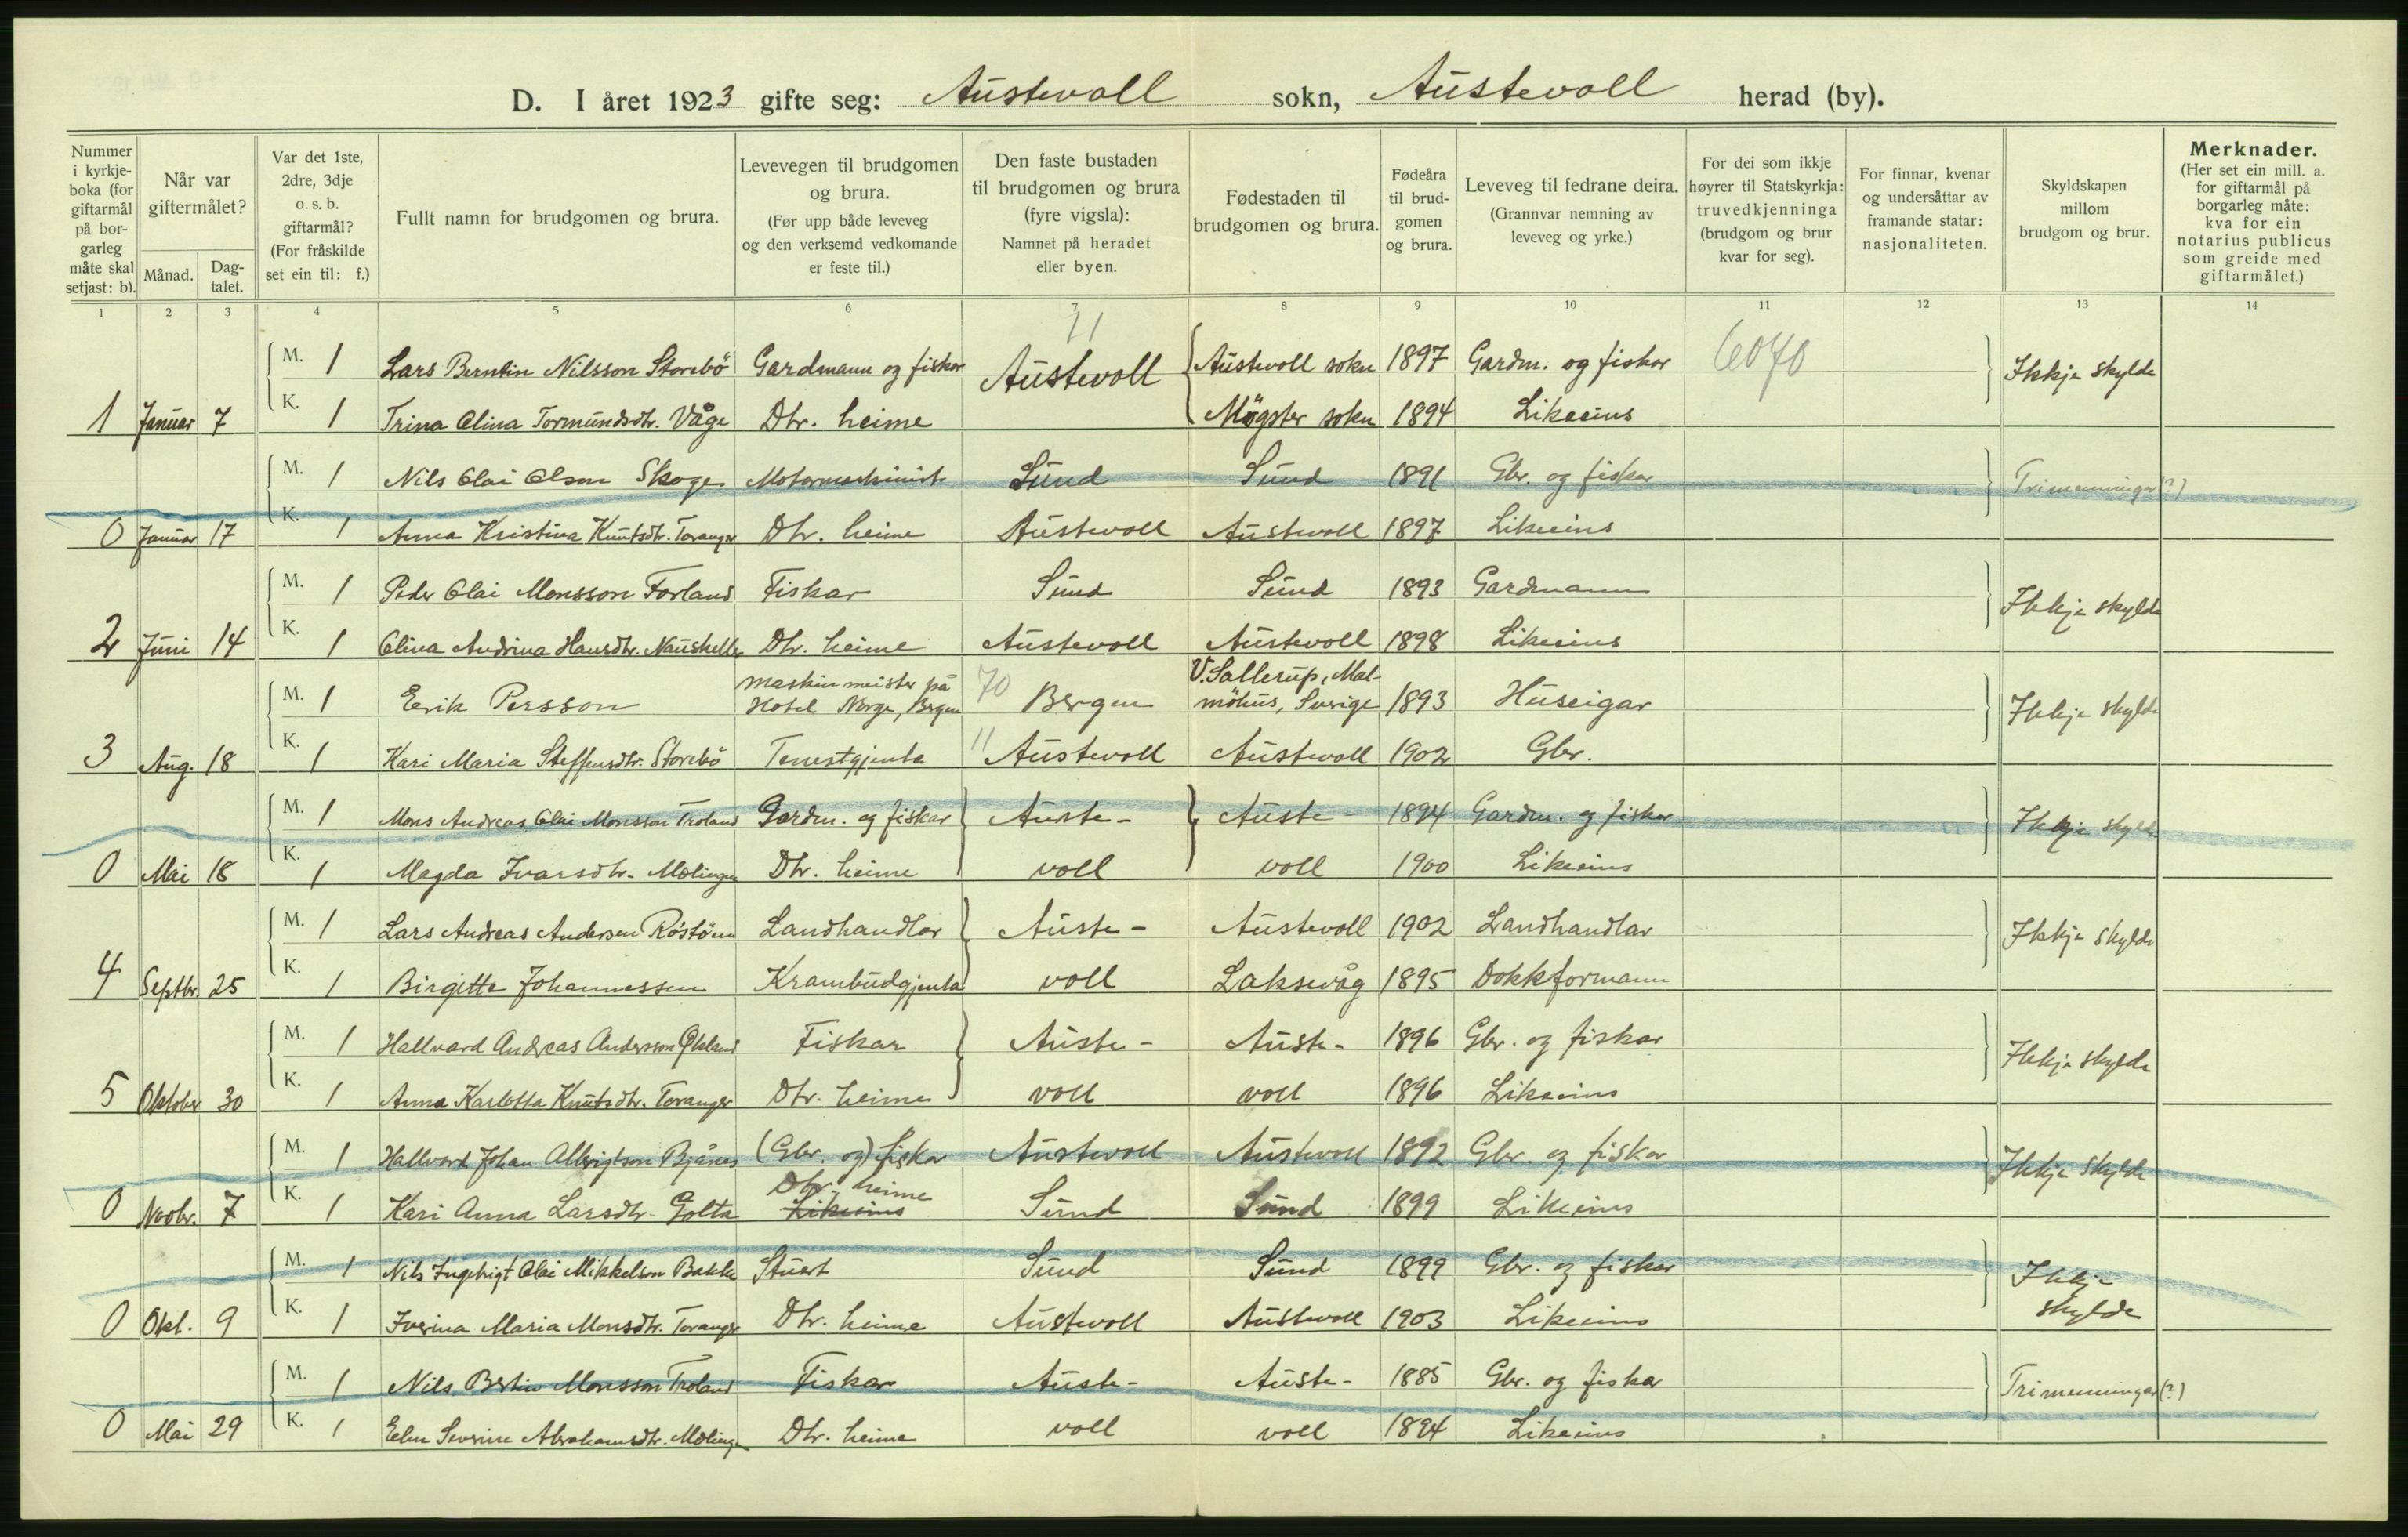 D. I året 1923 gifte seg: Austevoll sokn, Austevoll herad (by).
Nummer i kyrkje-boka (for giftarmål på bor-garleg måte skal setjast: b).
Når var giftermålet?
Månad.
Dag-talet.
Var det 1ste, 2dre, 3dje o. s. b. giftarmål? (For fråskilde set ein til: f.)
Fullt namn for brudgomen og brura.
Levevegen til brudgomen og brura. (Før upp både leveveg og den verksemd vedkomande er feste til.)
Den faste bustaden til brudgomen og brura (fyre vigsla): Namnet på heradet eller byen.
Fødestaden til brudgomen og brura.
Fødeåra til brud-gomen og brura.
Leveveg til fedrane deira. (Grannvar nemning av leveveg og yrke.)
For dei som ikkje høyrer til Statskyrkja: truvedkjenninga (brudgom og brur kvar for seg).
For finnar, kvenar og undersåttar av framande statar: nasjonaliteten.
Skyldskapen millom brudgom og brur.
Merknader. (Her set ein mill. a. for giftarmål på borgarleg måte: kva for ein notarius publicus som greide med giftarmålet.)
1 2 3 4 5 6 7 8 9 10 11 12 13 14
11
M. 1 Lars Berntin Nilsson Storebö Gardmann og fiskar Austevoll Austevoll sokn 1897 Gardm. og fiskar 6070 Ikkje skylde
1 Januar 7 K. 1 Trina Olina Tormundsdtr. Våge Dtr. heime Møgster sokn 1894 Likeeins
M. 1 Nils Olai Olson Skoge Motormaskinist Sund Sund 1891 Gbr. og fiskar Trimenningar (?)
0 Januar 17 K. 1 Anna Kristina Knutsdtr. Toranger Dtr. heime Austevoll Austevoll 1897 Likeeins
M. 1 Peder Olai Monsson Forland Fiskar Sund Sund 1893 Gardmann Ikkje skylde
2 Juni 14 K. 1 Olina Andrina Hansdtr. Dtr. heime Austevoll Austevoll 1898 Likeeins
M. 1 Erik Persson Maskinmeister på Hotel Norge, Bergen 70 Bergen V. Sallerup, Mal-möhus, Sverige 1893 Huseigar Ikkje skylde
3 Aug. 18 K. 1 Kari Maria Steffensdtr. Storebö Tenestgjenta 11 Austevoll Austevoll 1902 Gbr.
M. 1 Mons Andreas Olai Monsson Troland Gardm. og fiskar Auste- Auste- 1894 Gardm. og fiskar Ikkje skylde
0 Mai 18 K. 1 Magda Ivarsdtr. Mølingen Dtr. heime voll voll 1900 Likeeins
M. 1 Lars Andreas Andersen Landhandlar Auste- Austevoll 1902 Landhandlar Ikkje skylde
4 Septbr. 25 K. 1 Birgitte Johannessen Krambudgjenta voll Laksevåg 1895 Dokkformann
M. 1 Hallvard Andreas Andersson Økland Fiskar Auste- Auste- 1896 Gbr. og fiskar Ikkje skylde
5 Oktober 30 K. 1 Anna Karlotta Knutsdtr. Toranger Dtr. heime voll voll 1896 Likeeins
M. 1 Hallvard Johan Bjånes (Gbr. og) fiskar Austevoll Austevoll 1892 Gbr. og fiskar Ikkje skylde
0 Novbr. 7 K. 1 Kari Anna Larsdtr. Golta Dtr. heime Likeeins Sund Sund 1899 Likeeins
M. 1 Nils Ingebrigt Olai Mikkelson Bakke Stuert Sund Sund 1899 Gbr. og fiskar Ikkje skylde
0 Okt. 9 K. 1 Iverina Maria Monsdtr. Toranger Dtr. heime Austevoll Austevoll 1903 Likeeins
M. 1 Nils Bertin Monsson Troland Fiskar Auste- Auste- 1885 Gbr. og fiskar Trimenningar (?)
0 Mai 29 K. 1 Severine Abrahamsdtr. Mølingen Dtr. heime voll voll 1894 Likeeins